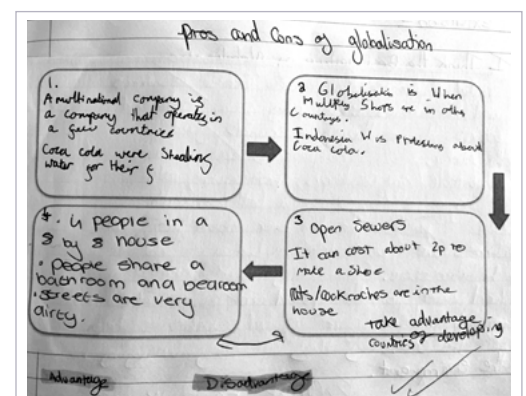 pros and cons of globalisation
1.
A multinational company is
a company that operates in
a few countries
Coca cola were Stealing
water for their
2 Globalisation is when
Multiple Shops are in other
Countrys.
Indonesia was Protesting about
Coca cola.
3 open sewers
It can cost about 2p to
make a shoe
rats/cockroches are in the
house
take advantage
of developing
countries
4. 4 people in a
8 by 8 house
• people share a
bathroom and bedroom
• streets are very
dirty.
Advantage
Disadvantage